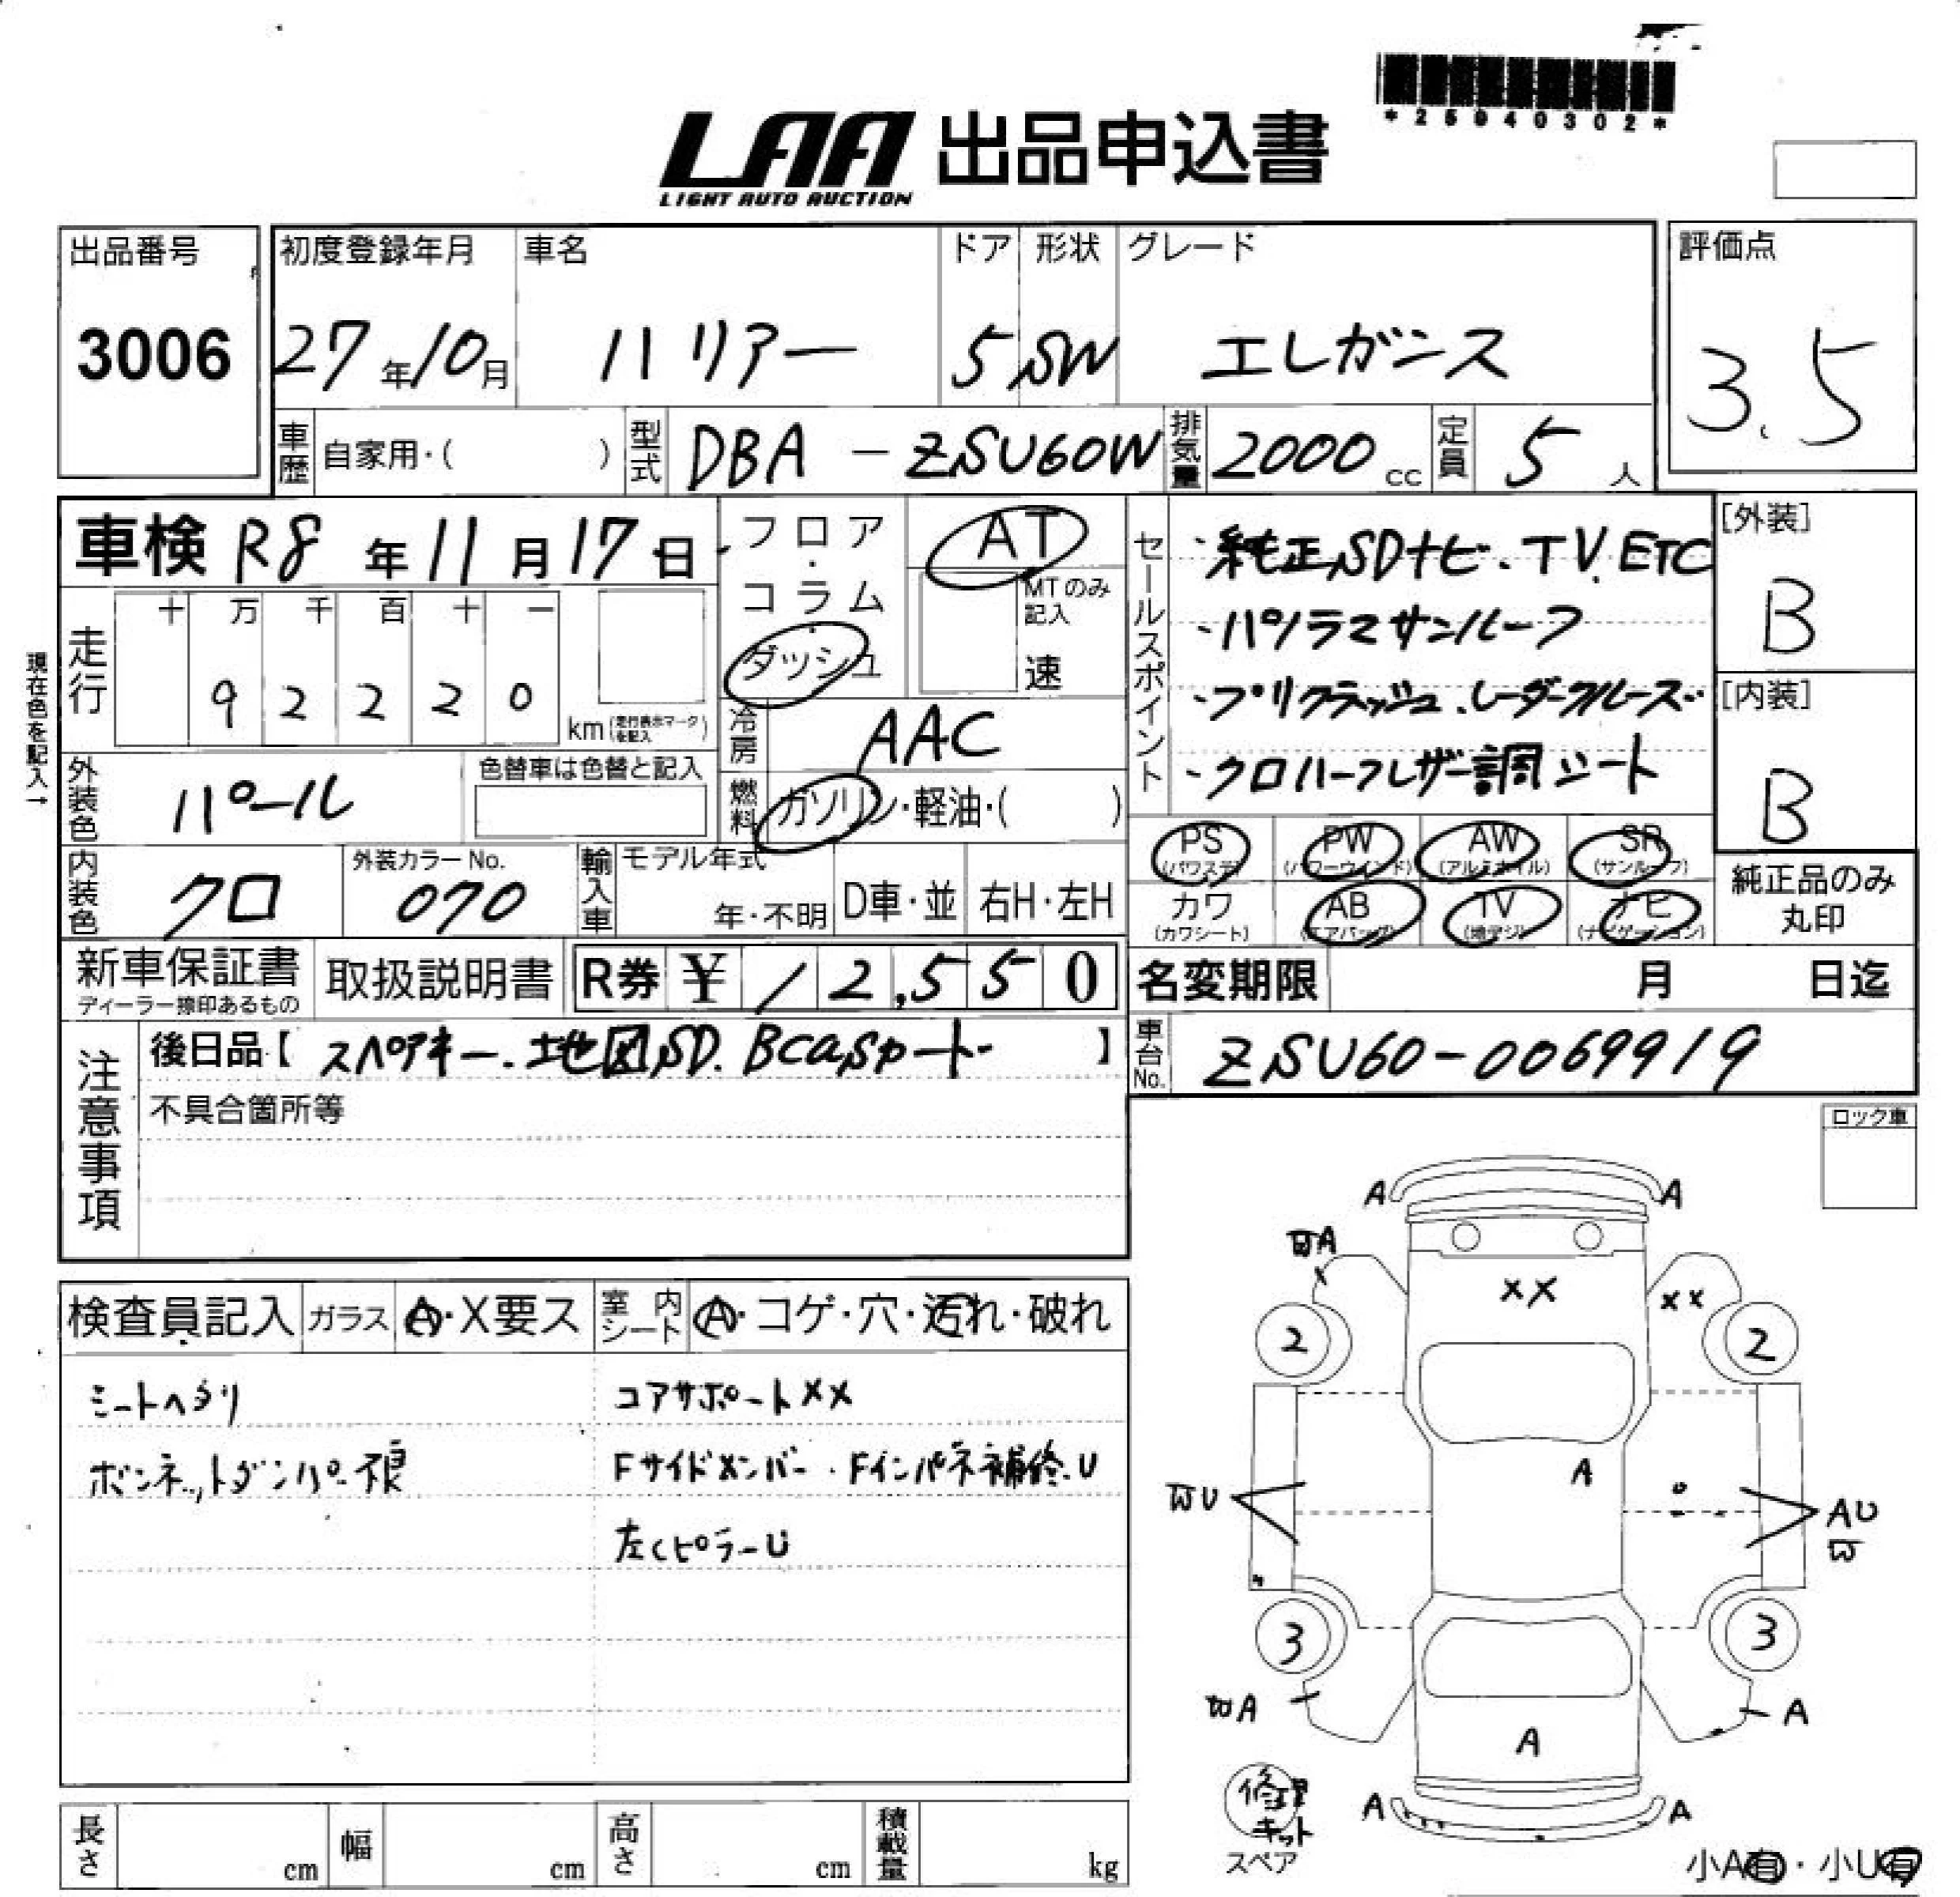 *25040302*
LAA 出品申込書
LIGHT AUTO AUCTION
出品番号 3006
初度登録年月 27年10月
車名 ハリアー
ドア 5
形状 SW
グレード エレガンス
評価点 3.5
車歴 自家用・( )
型式 DBA-ZSU60W
排気量 2000cc
定員 5人
車検 R8年11月17日
フロア・コラム・ダッシュ
AT
MTのみ記入
速
セールスポイント
・純正SDナビ.TV.ETC
・パノラマサンルーフ
・プリクラッシュ.レーダークルーズ
・クロハーフレザー調シート
[外装] B
[内装] B
現在色を記入→
走行 十万千百十一
92220
km(走行表示マークを記入)
冷房 AAC
外装色 パール
色替車は色替と記入
燃料 ガソリン・軽油・( )
PS(パワステ) PW(パワーウインド) AW(アルミホイル) SR(サンルーフ)
カワ(カワシート) AB(エアバッグ) TV(地デジ) ナビ(ナビゲーション)
純正品のみ丸印
内装色 クロ
外装カラーNo. 070
輸入車 モデル年式 年・不明 D車・並 右H・左H
新車保証書
ディーラー捺印あるもの
取扱説明書
R券 ¥12,550
名変期限 月 日迄
注意事項
後日品【スペアキー.地図SD.Bcasカード】
車台No. ZSU60-0069919
不具合箇所等
ロック車
検査員記入 ガラス A・X要ス 室内シート A・コゲ・穴・汚れ・破れ
シートヘタリ
コアサポートXX
ボンネットダンパー不良
Fサイドメンバー.Fインパネ補修.U
左CピラーU
A A
A
XX XX
2 2
A
WU AU
W
3 3
WA A
A
A A
修理キット
スペア
小A有・小U有
長さ cm 幅 cm 高さ cm 積載量 kg